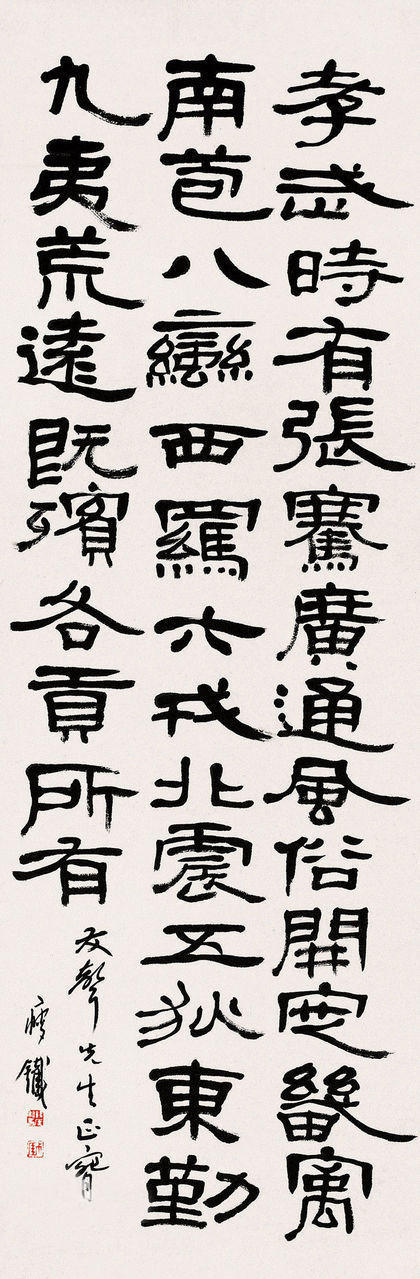 孝武時有張騫廣通風俗開定畿寓
南苞八蠻西羈六戎北震五狄東勤
九夷荒遠既殯各貢所有
友聲先生正
瘦鐵